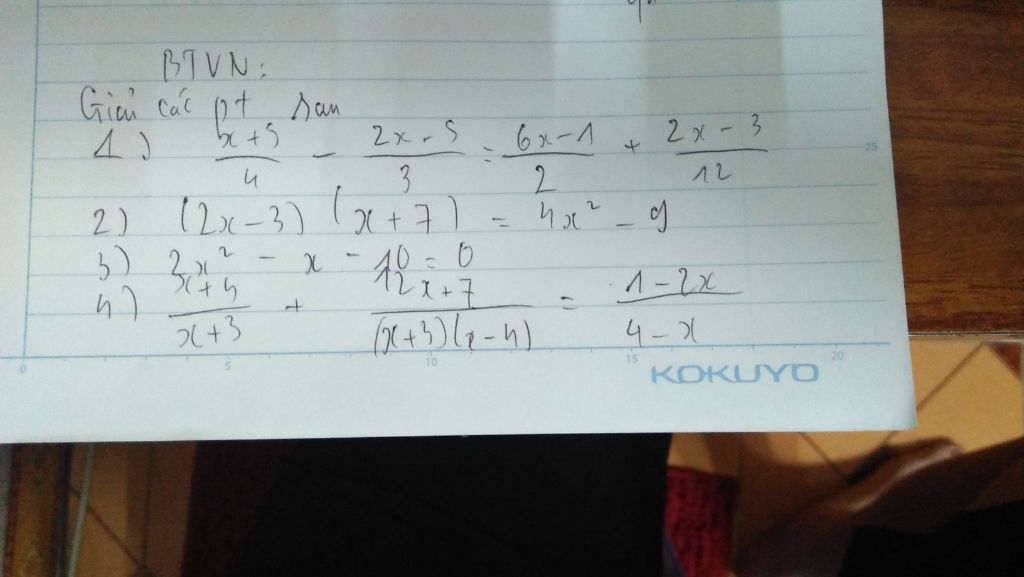 BTVN:
Giải các pt sau
1) (x+5)/4 - (2x-5)/3 = (6x-1)/2 + (2x-3)/12
25
2) (2x-3)(x+7) = 4x² - 9
3) 2x² - x - 10 = 0
4) (x+4)/(x+3) + (12x+7)/((x+3)(x-4)) = (1-2x)/(4-x)
0 5 10 15 20
KOKUYO